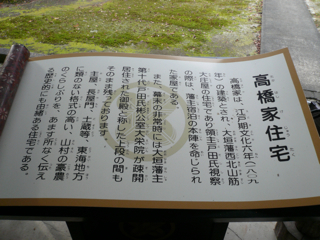 高橋家住宅
高橋家は、江戸期文化六年(一八〇九
年)の建築とされ、大垣藩西北山筋
大庄屋の住宅であり領主戸田氏視察
の際は、藩主宿泊の本陣を命じられ
た家屋である。
また、幕末の非常時には大垣藩主
第十代戸田氏彬公室入栄院が疎開
居住された御殿と称した上段の間も
そのまま残っております。
主屋、長屋門、土蔵等、東海地方
に類のない格式の高い、山村の豪農
のくらしぶりを、あます所なく伝え
る歴史的にも由緒ある住宅である。